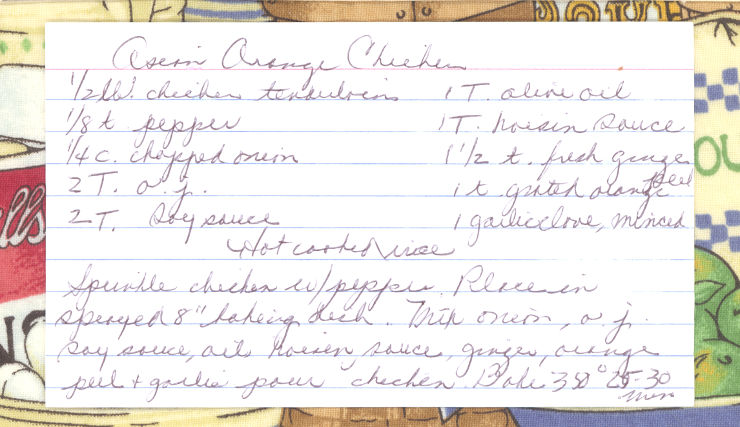 Asian Orange Chicken
1/2 lb. chicken tenderloins 1 T. olive oil
1/8 t pepper 1 T. hoisin sauce
1/4 c. chopped onion 1 1/2 t. fresh ginger
2 T. o.j. 1 t grated orange peel
2 T. soy sauce 1 garlic clove, minced
Hot cooked rice
Sprinkle chicken w/ pepper. Place in
sprayed 8" baking dish. Mix onion, o.j.
soy sauce, oil hoisin, sauce, ginger, orange
peel + garlic pour chicken Bake 350° 25-30
min